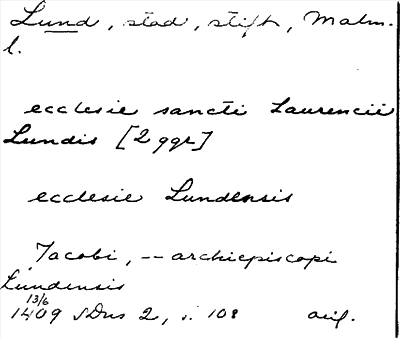 Lund, stad, stift, Malm.
l.
ecclesie sancti Laurencii
Lundis [2 ggr]
ecclesie Lundensis
Jacobi, -- archiepiscopi
Lundensis
13/6
1409 SDns 2, s. 108 avs.